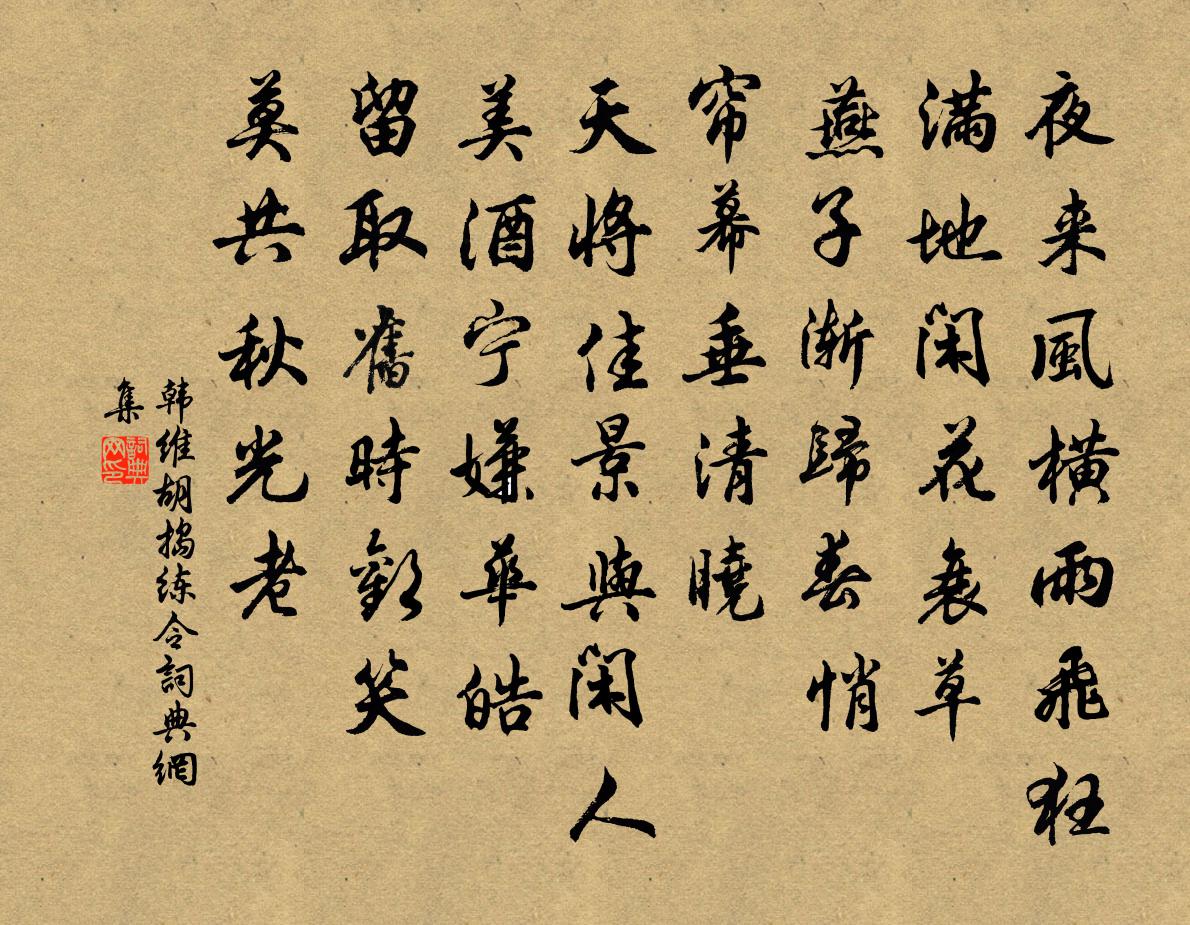 夜来風橫雨飛狂
滿地閑花衰草
燕子漸歸春悄
帘幕垂清曉
天將佳景與閑人
美酒宁嫌華皓
留取舊時歡笑
莫共秋光老
韩維胡搗練令詞典網
集
詞典
网印